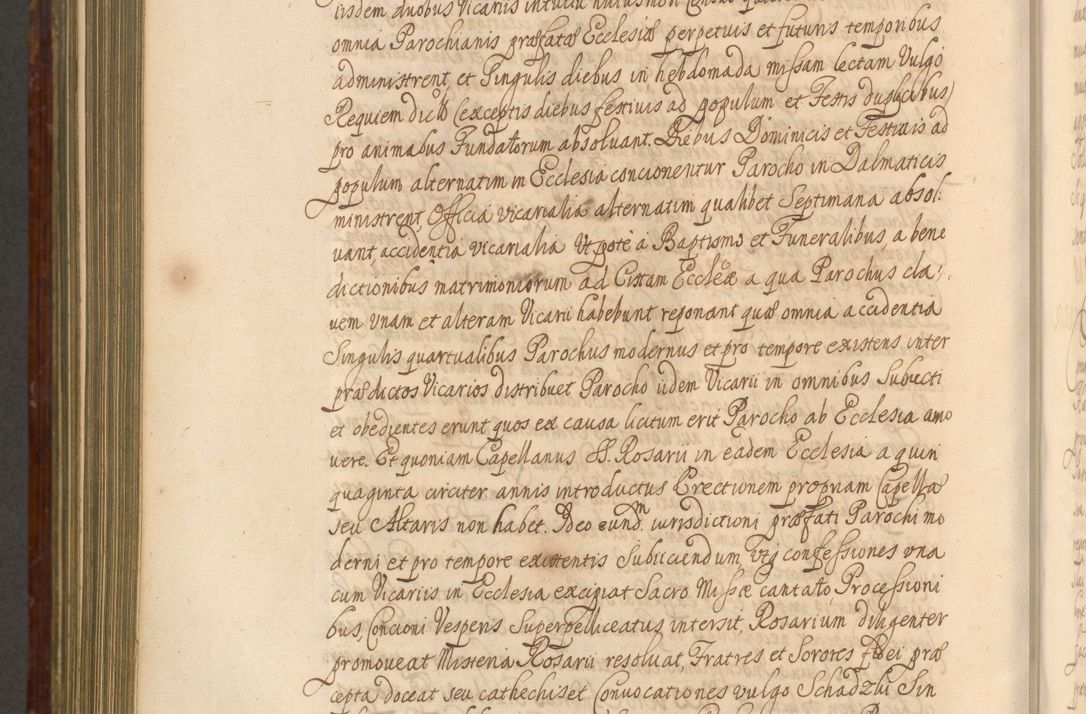 iisdem duobus Vicariis intuitu huiusmodi Census
omnia Parochianis præfatæ Ecclesiæ perpetuis et futuris temporibus
administrent, et Singulis diebus in hebdomada missam lectam Vulgo
Requiem dictā (exceptis diebus festivis ad populum et Festis duplicibus)
pro animabus Fundatorum absolvant. Diebus Dominicis et Festivis ad
populum alternatim in Ecclesia concionentur Parocho in Dalmaticis
ministrent Officia vicarialia alternatim qualibet Septimana absol:
vant, accidentia vicarialia Utpote à Baptismo et Funeralibus, a bene
dictionibus matrimoniorum ad Cistam Eccleæ a qua Parochus cla:
vem unam et alteram Vicarii habebunt reponant quæ omnia accidentia
Singulis quartualibus Parochus modernus et pro tempore existens inter
prædictos Vicarios distribuet Parocho iidem Vicarii in omnibus Subiecti
et obedientes erunt quos ex causa licitum erit Parocho ab Ecclesia amo
vere. Et quoniam Capellanus SS. Rosarii in eadem Ecclesia a quin
quaginta circiter annis introductus Erectionem propriam Capellæ
seu Altaris non habet. Ideo eundm iurisdictioni præfati Parochi mo
derni et pro tempore existentis Subiiciendum, utq confessiones una
cum Vicariis in Ecclesia excipiat Sacro Missæ cantato, Processioni
bus, Concioni Vesperis Superpelliceatus intersit, Rosarium diligenter
promoveat Misteria Rosarii resolvat, Fratres et Sorores Fidei præ
cepta doceat seu cathechiset Convocationes vulgo Schadzki Sin